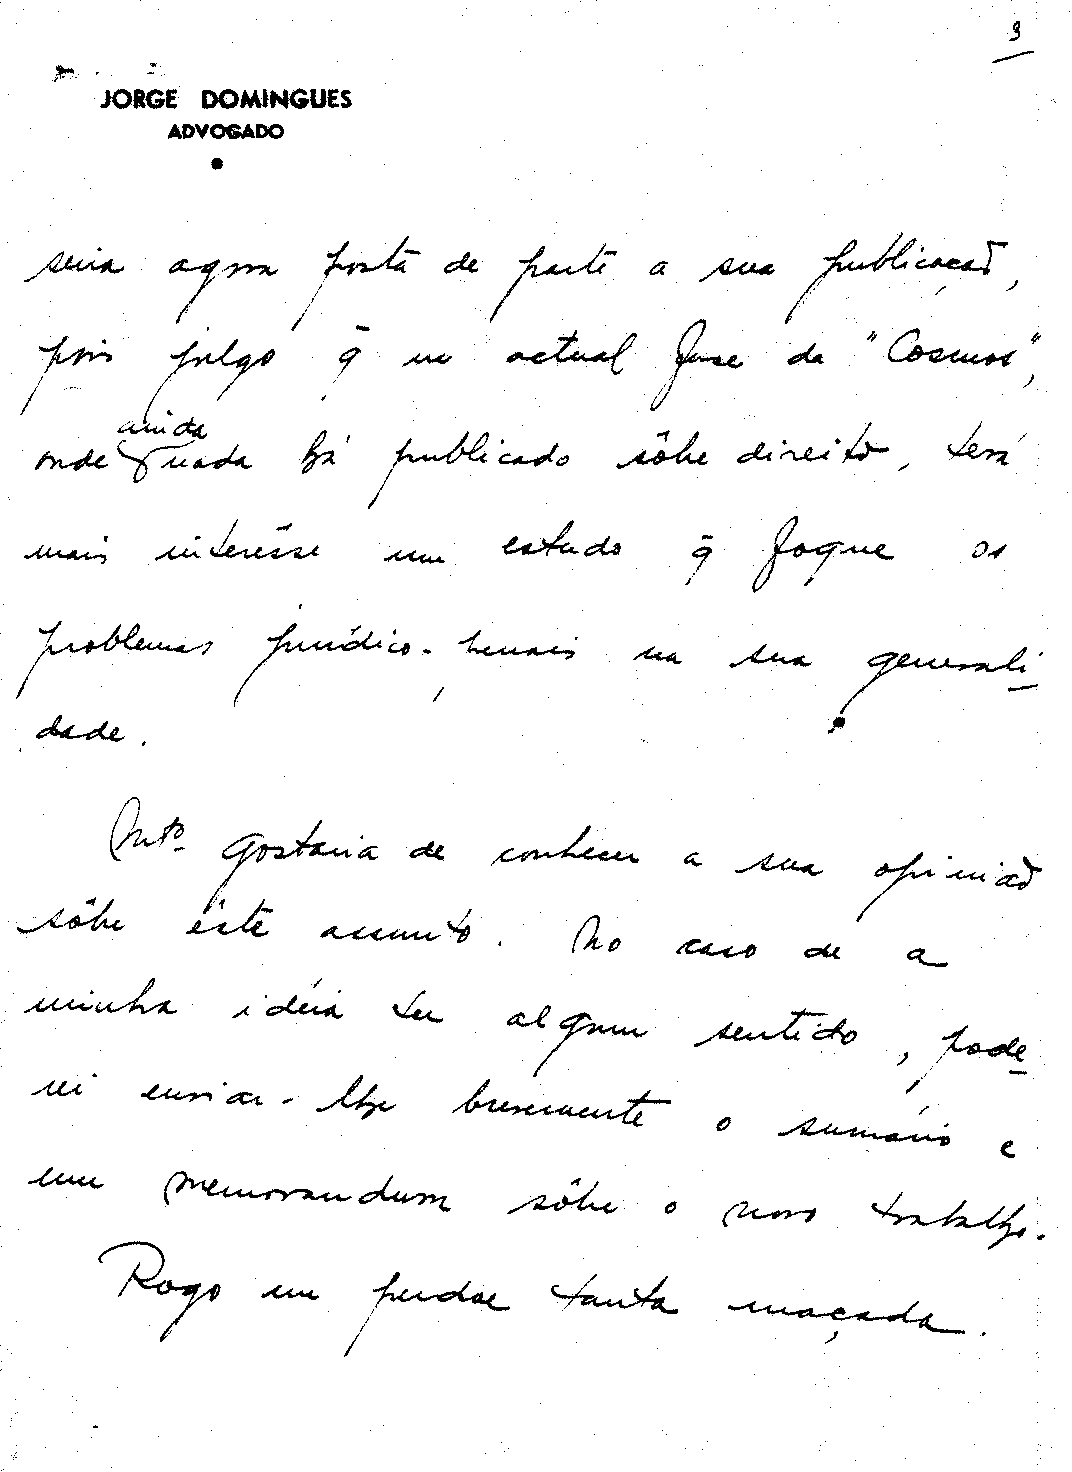 3
JORGE DOMINGUES
ADVOGADO
seria agora posta de parte a sua publicação,
pois julgo q̃ na actual fase da "Cosmos",
onde ainda nada há publicado sôbre direito, terá
mais interêsse um estudo q̃ foque os
problemas jurídico-penais na sua generali-
dade.
Mtº. gostaria de conhecer a sua opinião
sôbre êste assunto. No caso de a
minha idéia ter algum sentido, pode-
rei enviar-lhe brevemente o sumário e
um memorandum sôbre o novo trabalho.
Rogo me perdoe tanta maçada.